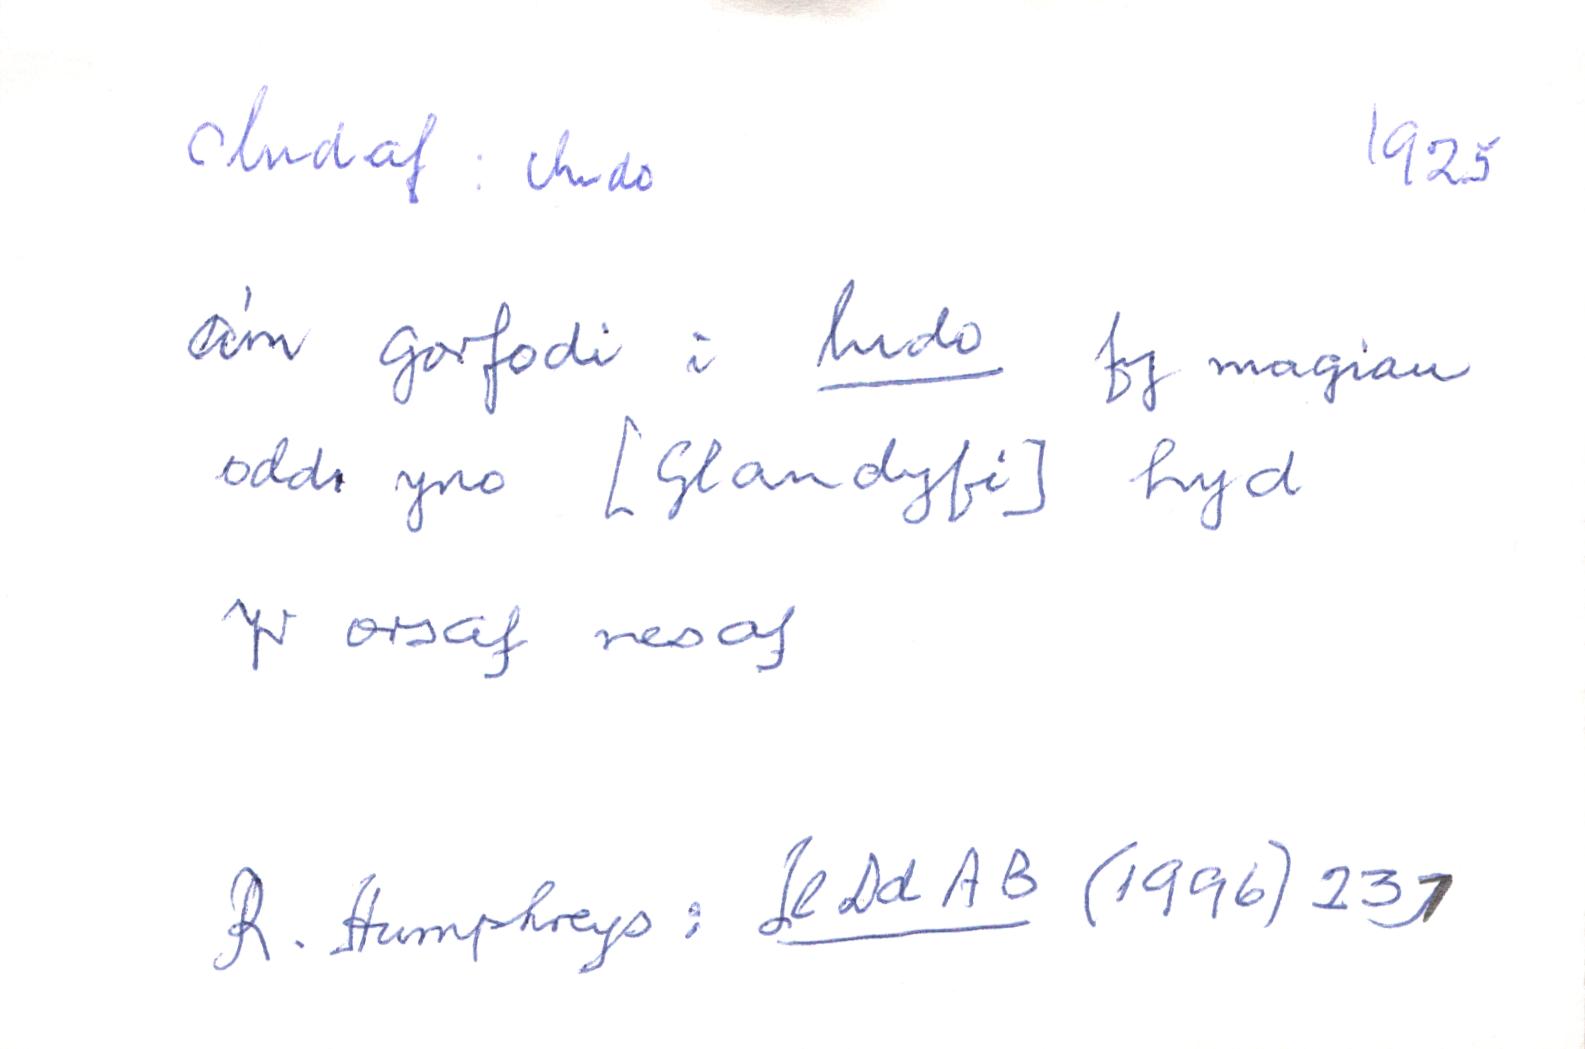 cludaf : cludo 1925
a'm gorfodi i ludo fy magiau
oddi yno [Glandyfi] hyd
yr orsaf nesaf
R. Humphreys: Ll Dd A B (1996) 237